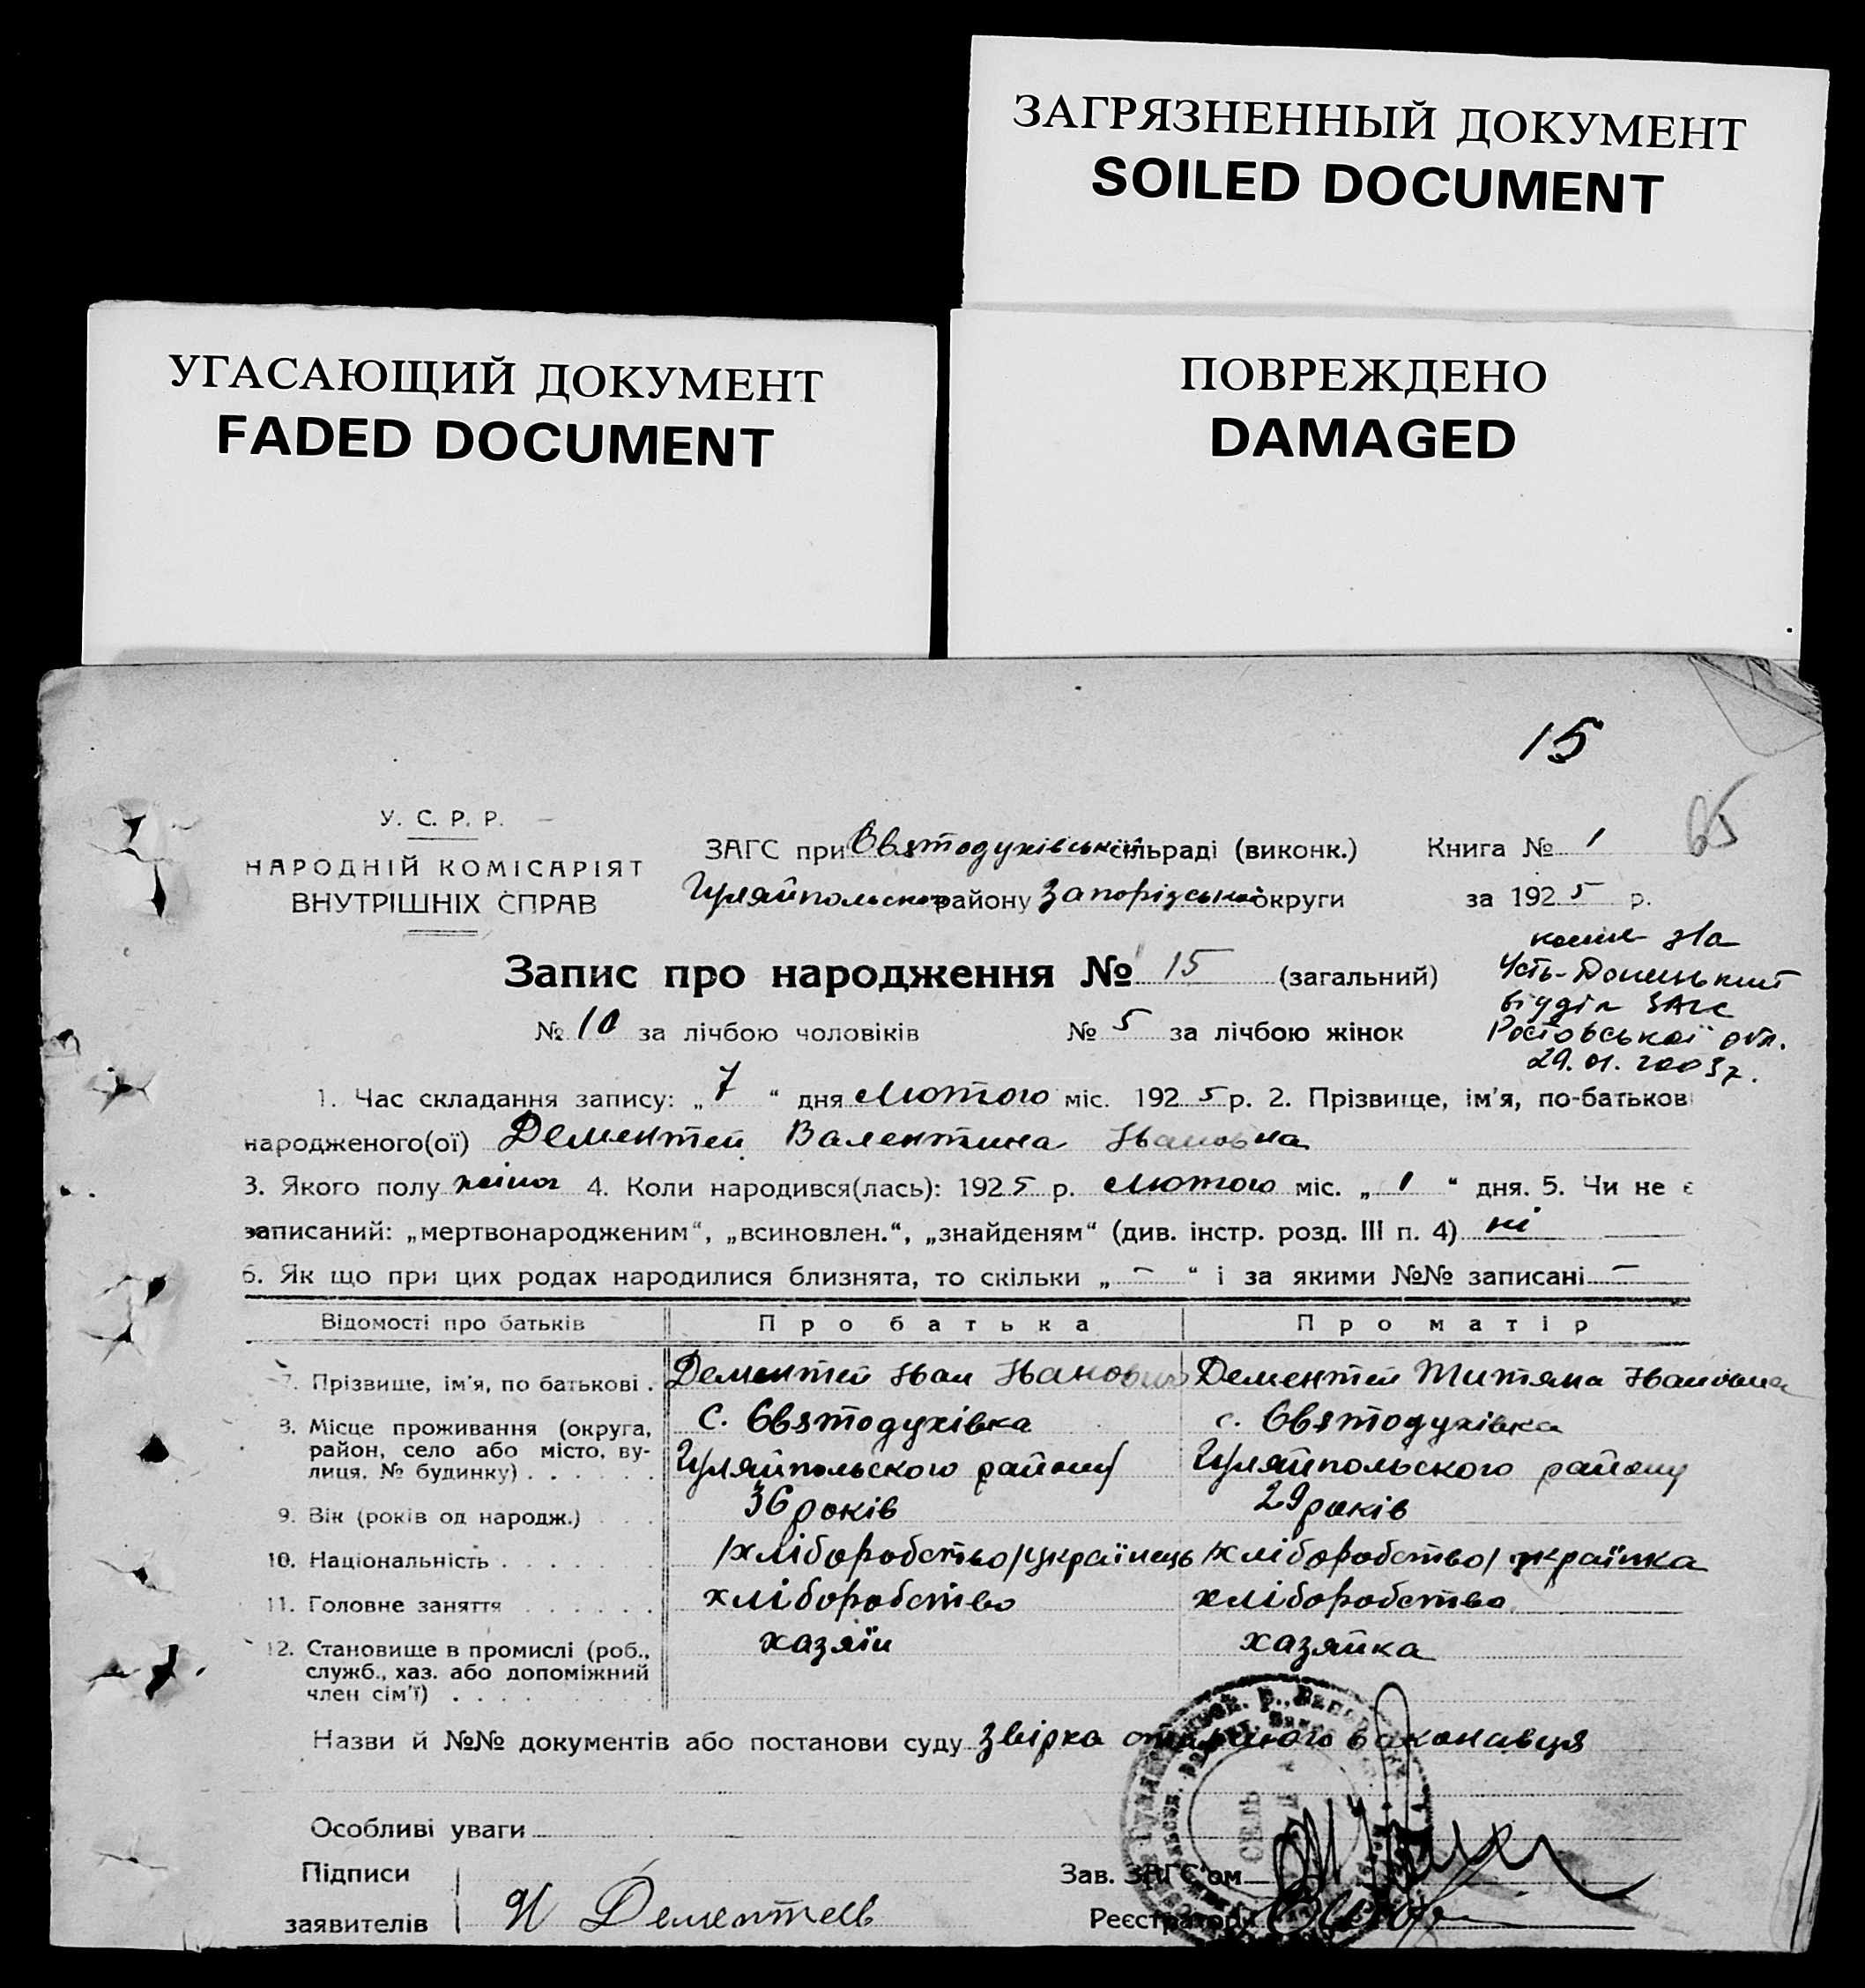 ЗАГРЯЗНЕННЫЙ ДОКУМЕНТ
SOILED DOCUMENT
УГАСАЮЩИЙ ДОКУМЕНТ
FADED DOCUMENT
ПОВРЕЖДЕНО
DAMAGED
15
65
У. С. Р. Р.
НАРОДНІЙ КОМІСАРІЯТ
ВНУТРІШНІХ СПРАВ
ЗАГС при Святодухівській сільраді (виконк.) Книга № 1
Гуляйпольского району Запорізської округи за 1925 р.
копия на
Усть-Донецький
відділ ЗАГС
Ростовської обл.
29.01.2003р.
Запис про народження № 15 (загальний)
№ 10 за лічбою чоловіків № 5 за лічбою жінок
1. Час складання запису: „7“ дня Лютого міс. 1925 р. 2. Прізвище, ім'я, по-батькові
народженого(ої) Дементей Валентина Ивановна
3. Якого полу жіноч 4. Коли народився(лась): 1925 р. Лютого міс. „1“ дня. 5. Чи не є
записаний: „мертвонародженим“, „всиновлен.“, „знайденям“ (див. інстр. розд. III п. 4) ні
6. Як що при цих родах народилися близнята, то скільки „–“ і за якими №№ записані –
Відомості про батьків Про батька Про матір
7. Прізвище, ім'я, по батькові . Дементей Иван Иванович Дементей Титяна Ивановна
8. Місце проживання (округа, с. Святодухівка с. Святодухівка
район, село або місто, ву-
лиця, № будинку) . . . . . . Гуляйпольского району Гуляйпольского району
9. Вік (років од народж.) . . . 36 років 29 років
10. Національність . . . . . . /хліборобство/ українець /хліборобство/ українка
11. Головне заняття . . . . . . хліборобство хліборобство
12. Становище в промислі (роб., хазяїн хазяйка
служб., хаз. або допоміжний
член сім'ї) . . . . . . . . .
Назви й №№ документів або постанови суду звірка виконавця
Особливі уваги
Підписи
заявителів И Дементеев
Зав. ЗАГС'ом
Реєстратор